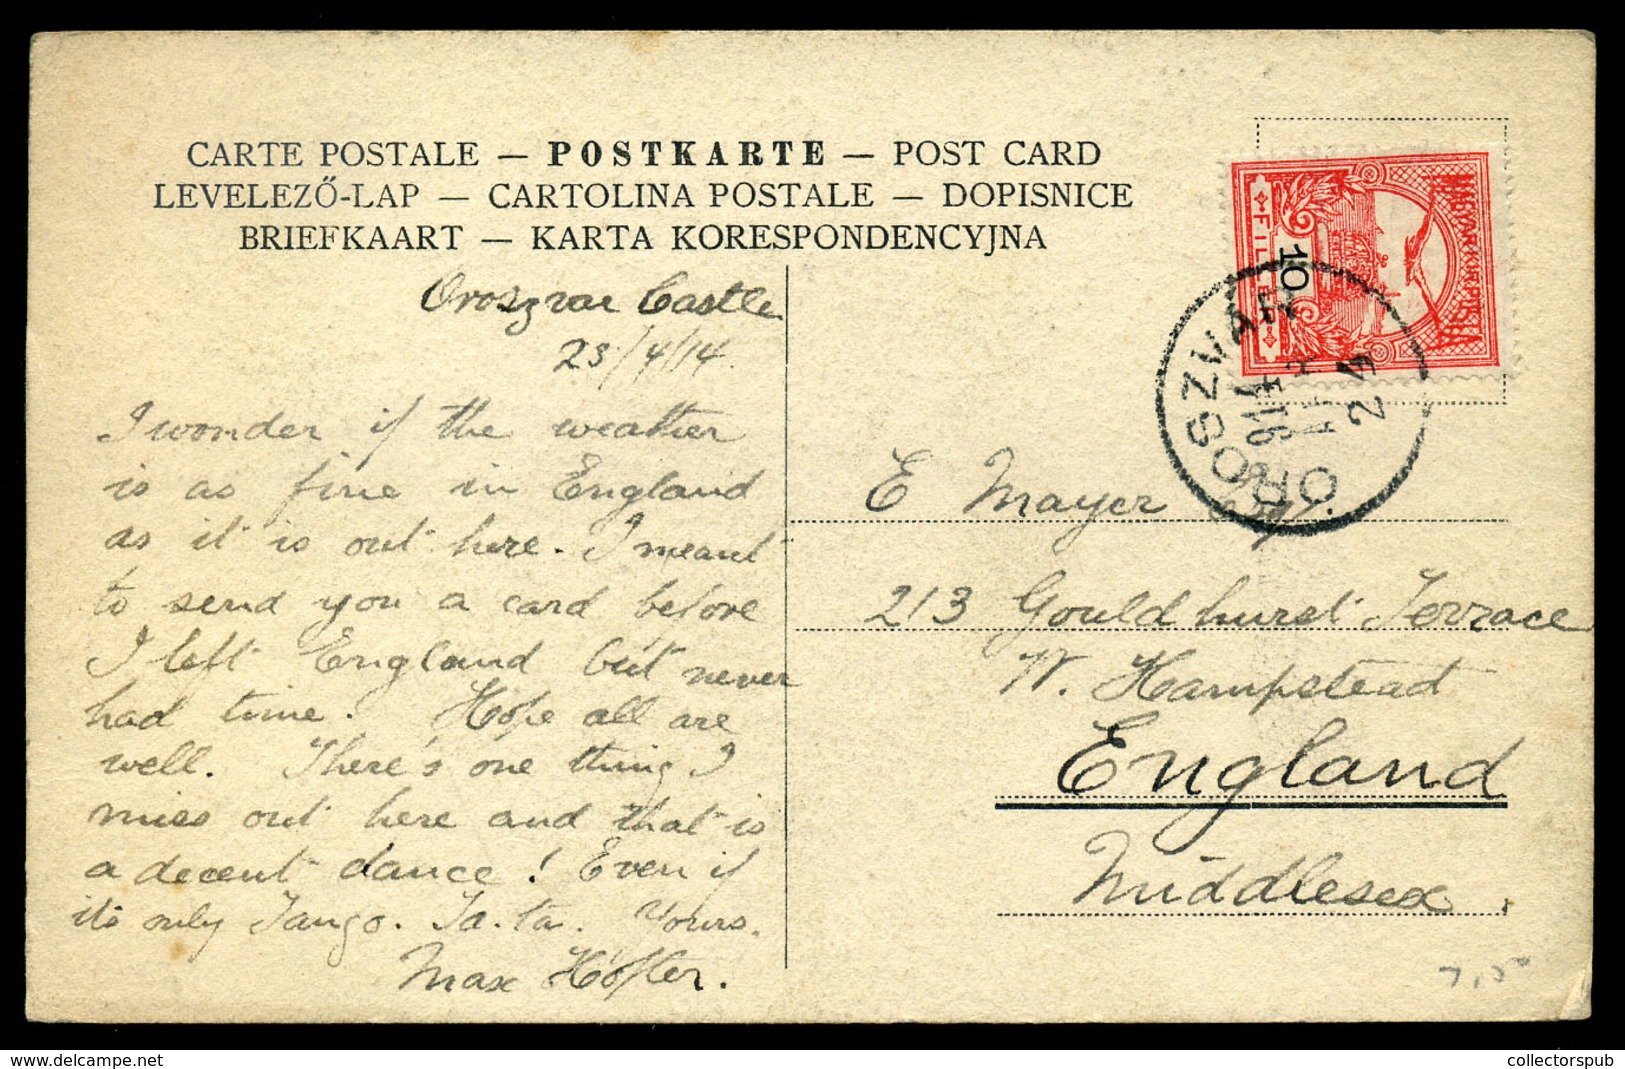 CARTE POSTALE — POSTKARTE — POST CARD
LEVELEZŐ-LAP — CARTOLINA POSTALE — DOPISNICE
BRIEFKAART — KARTA KORESPONDENCYJNA
Oroszvar Castle
23/4/14.
I wonder if the weather
is as fine in England
as it is out here. I meant
to send you a card before
I left England but never
had time. Hope all are
well. There's one thing I
miss out here and that is
a decent dance! Even if
its only Tango. Ta-ta. Yours.
Max Höfler.
MAGYAR KIR. POSTA
10
FILLÉR
OROSZVÁR
914
24
E Mayer
213 Gouldhurst Terrace
W. Hampstead
England
Middlesex
7,50
www.delcampe.net
collectorspub